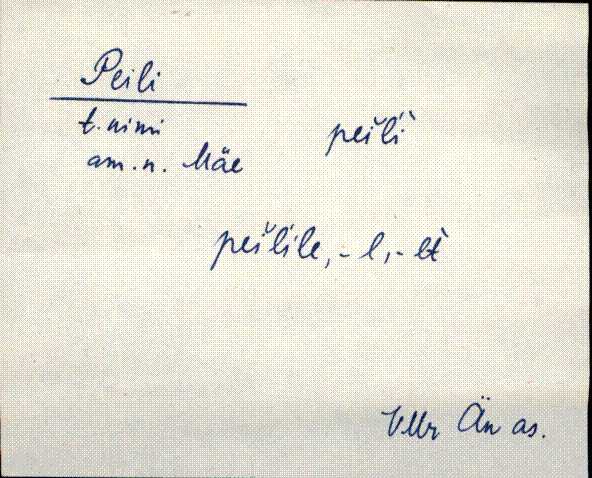 Peili
t. nimi
am. n. Mäe
peĭli`
peĭlile, -l, -lt
VMr Än as.